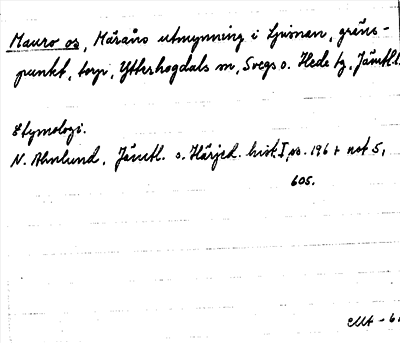 Mauro os, Måråns utmynning i Ljusnan, gräns-
punkt, torp, Ytterhogdals sn, Svegs o. Hede tg, Jämtl.l.
Etymologi.
N. Ahnlund, Jämtl. o. Härjed. hist. I, s. 196 + not 5,
605.